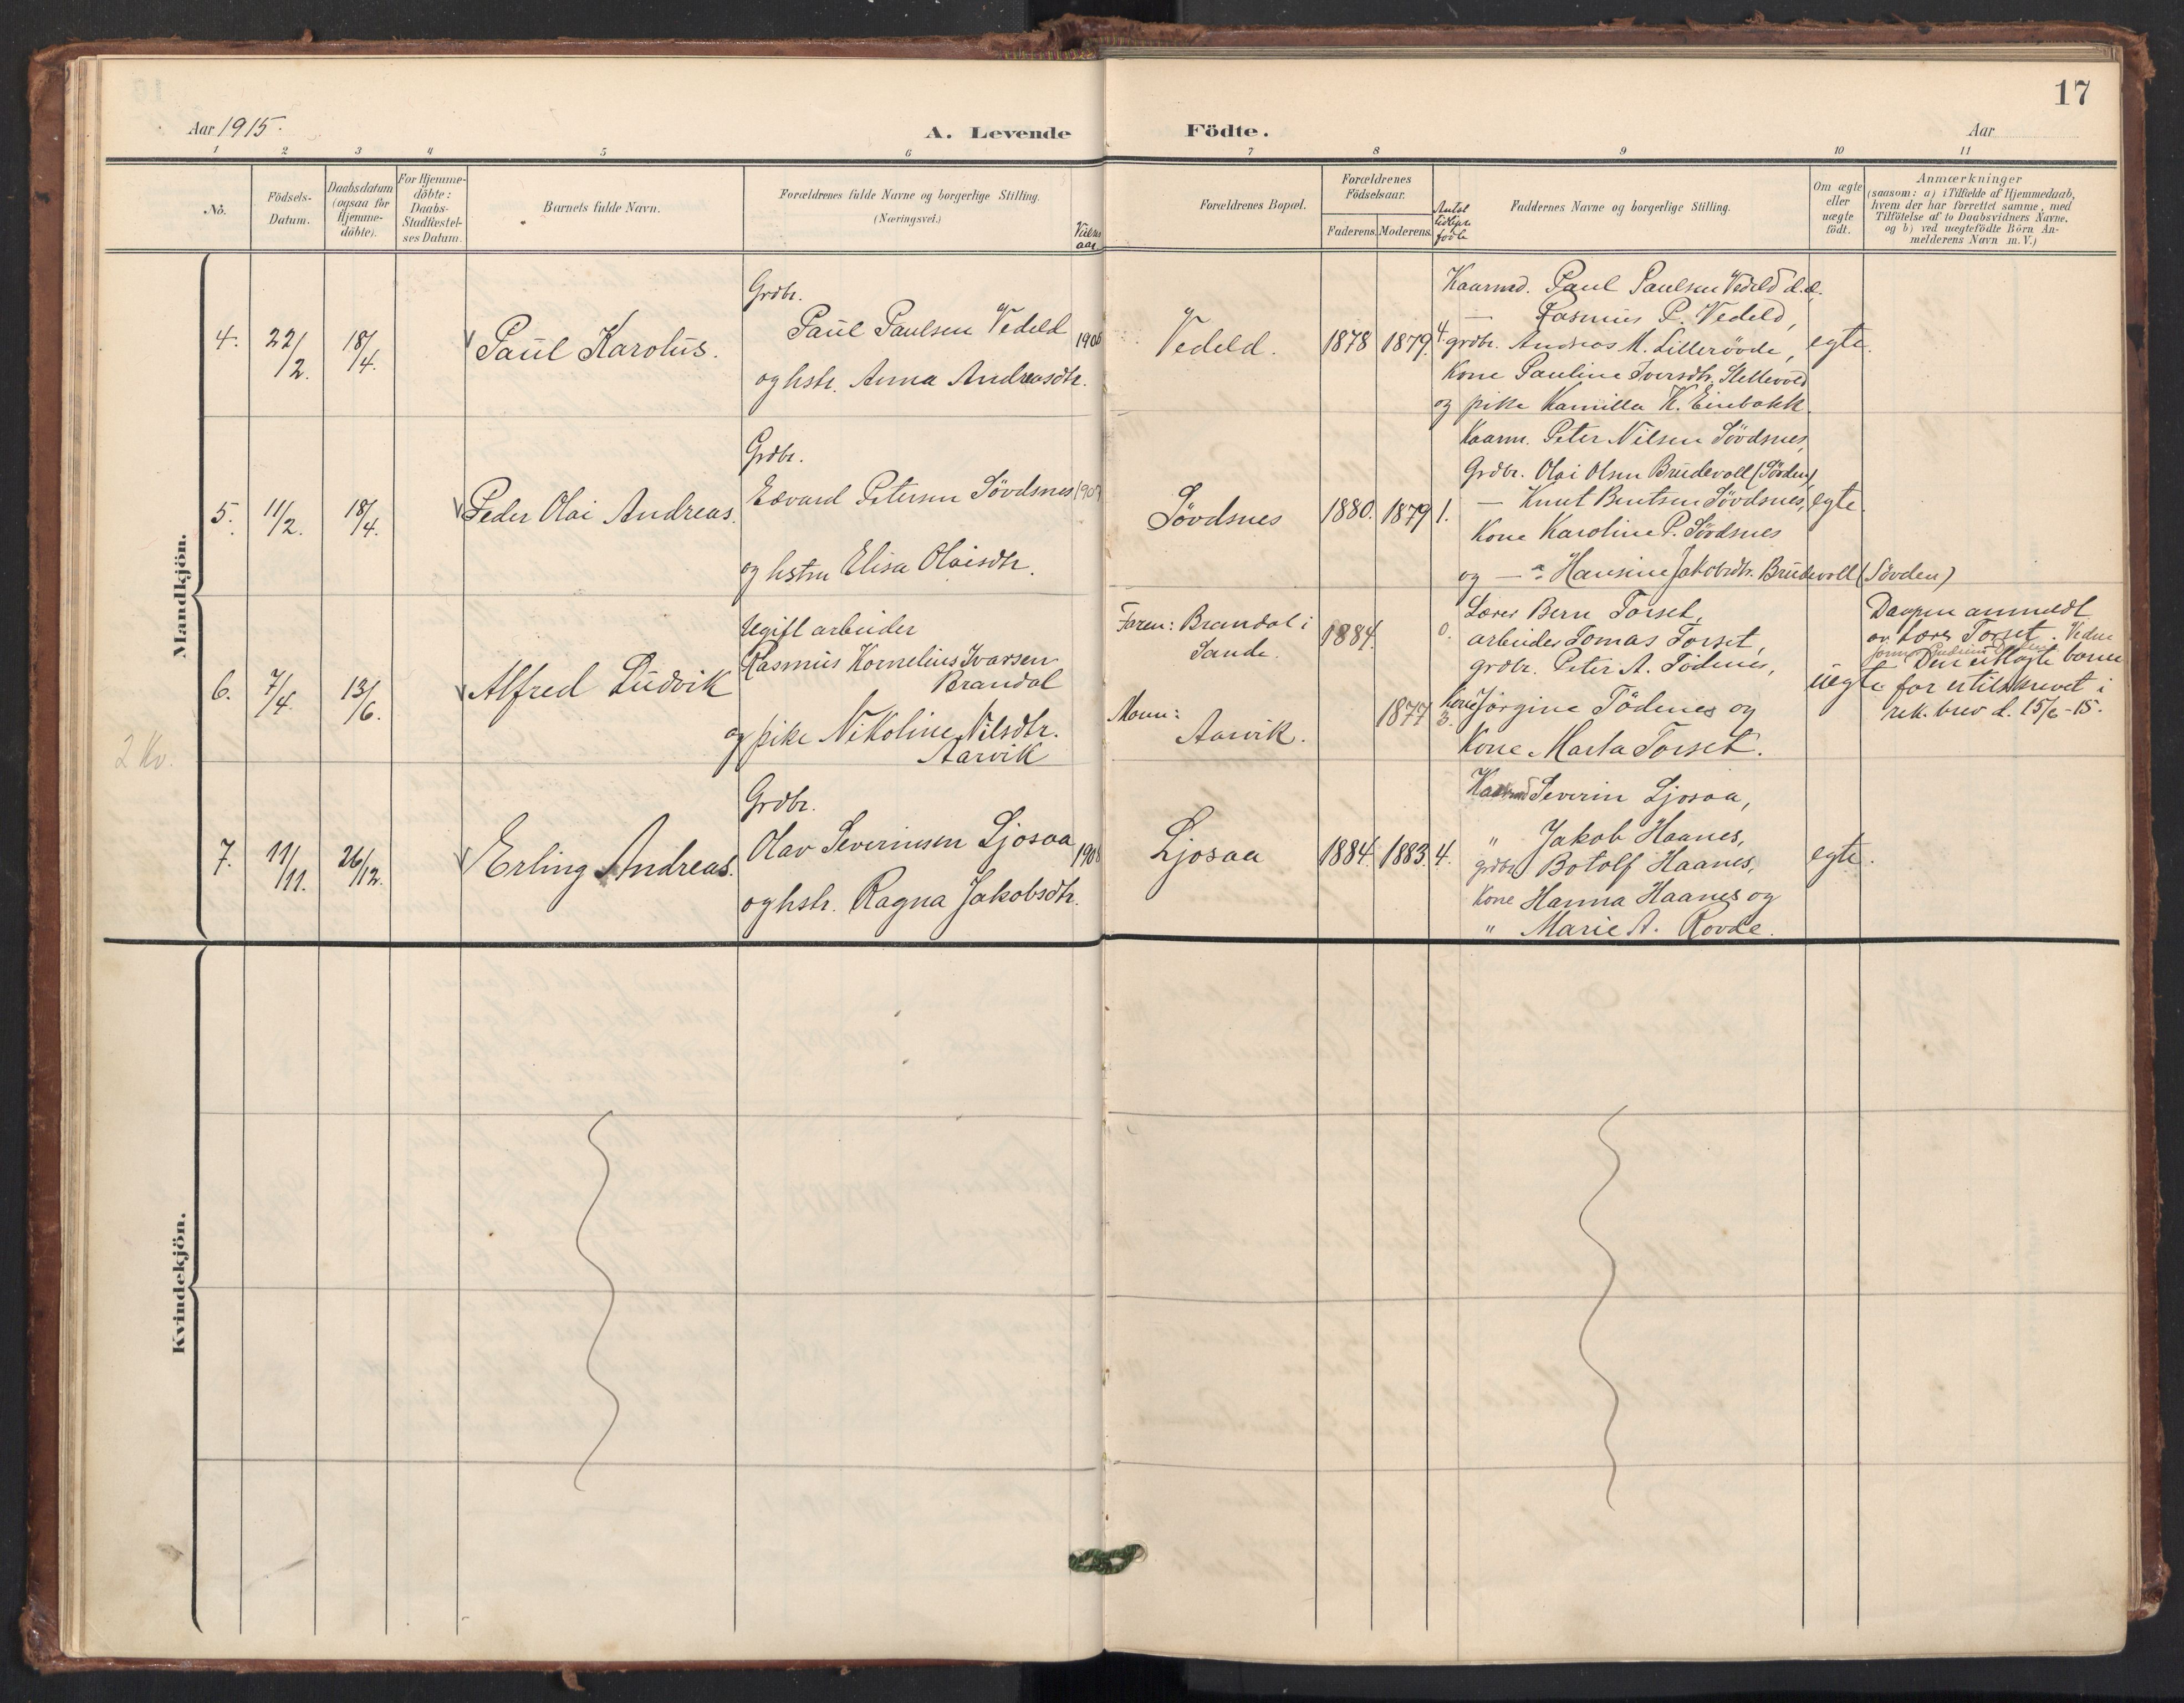 17
Aar 1915.
A. Levende Födte.
Aar
1 2 3 4 5 6 7 8 9 10 11
No.
Födsels-
Datum.
Daabsdatum
(ogsaa for
Hjemme-
döbte).
For Hjemme-
döbte:
Daabs-
Stadfæstel-
ses Datum.
Barnets fulde Navn.
Forældrenes fulde Navne og borgerlige Stilling.
(Næringsvei.)
Vielses
aar
Forældrenes Bopæl.
Forældrenes
Födselsaar.
Faderens. Moderens.
Antal
tidligere
fødte
Faddernes Navne og borgerlige Stilling.
Om ægte
eller
uægte
födt.
Anmærkninger
(saasom: a) i Tilfælde af Hjemmedaab,
hvem der har forrettet samme, med
Tilföielse af to Daabsvidners Navne,
og b) ved uægtefödte Börn An-
melderens Navn m. V.)
Mandkjön.
4.
22/2.
18/4.
Paul Karolus.
Grdbr.
Paul Paulsen Vedeld 1906
og hstr. Anna Andreasdtr.
Vedeld.
1878 1879. 4.
Kaarmd. Paul Paulsen Vedeld d.æ.
— Rasmus P. Vedeld,
grdbr. Andreas M. Lillerövde,
Kone Pauline Iversdtr.
og pike Kamilla K. Eirebakk.
egte.
5.
11/2.
18/4.
Peder Olai Andreas.
Grdbr.
Edvard Petersen Sövdsnes
og hstru Elisa Olaisdtr.
Sövdsnes
1880. 1879 1.
Kaarm. Peter Nilsen Sövdsnes,
Grdbr. Olai Olsen Brudevoll (Sövden)
— Knut Bentsen Sövdsnes,
Kone Karoline P. Sövdsnes
og — " Hansine Jakobsdtr. Brudevoll (Sövden)
egte.
6.
7/4.
13/6.
Alfred Ludvik
Ugift arbeider
Rasmus Kornelius Ivarsen
Brandal
og pike Nikoline Nilsdtr.
Aarvik
Faren: Brandal i
Sande.
Moren:
Aarvik.
1884.
1877
0.
3.
Lærer Bern Torset,
arbeider Tomas Torset,
grdbr. Peter A. Tödenes,
Kone Jörgine Tödenes og
Kone Marta Torset.
uegte
Daapen anmeldt
av Lærer Torset.
Den utlagte barne
far er tilskrevet i
rek. brev d. 15/6-15.
2 Kv.
7.
11/11.
26/12.
Erling Andreas.
Grdbr.
Olav Severinsen Ljosaa 1908
og hstr. Ragna Jakobsdtr.
Ljosaa
1884. 1883. 4.
Kaarmd Severin Ljosaa,
" Jakob Haanes,
grdbr Botolf Haanes,
Kone Hanna Haanes og
" Marie A. Rovde.
egte.
Kvindekjön.